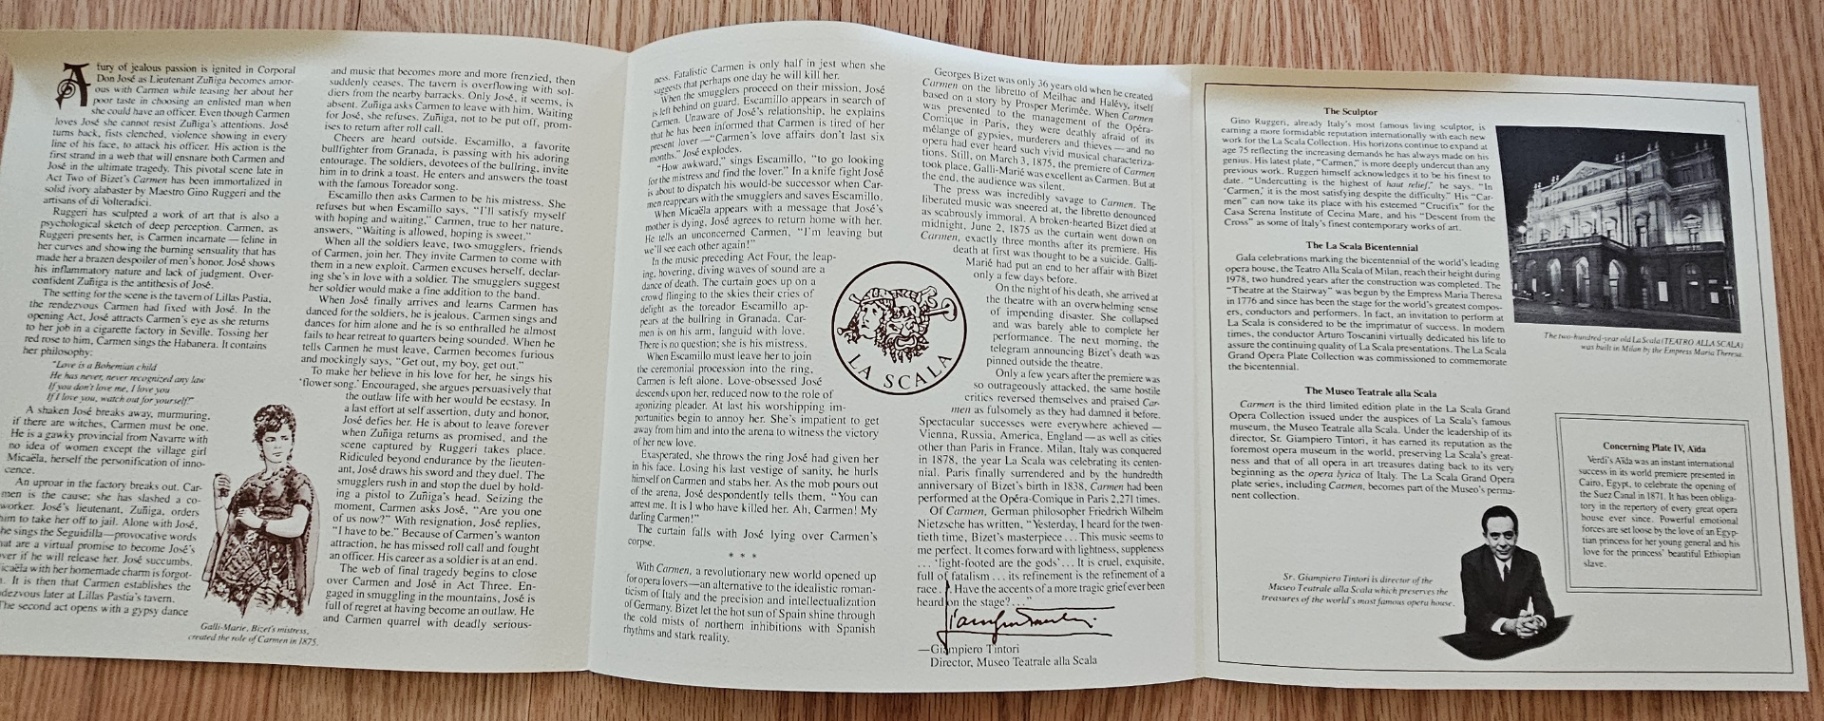 A fury of jealous passion is ignited in Corporal
Don José as Lieutenant Zuñiga becomes amor-
ous with Carmen while teasing her about her
poor taste in choosing an enlisted man when
she could have an officer. Even though Carmen
loves José she cannot resist Zuñiga's attentions. José
turns back, fists clenched, violence showing in every
line of his face, to attack his officer. His action is the
first strand in a web that will ensnare both Carmen and
José in the ultimate tragedy. This pivotal scene late in
Act Two of Bizet's Carmen has been immortalized in
solid ivory alabaster by Maestro Gino Ruggeri and the
artisans of di Volteradici.
Ruggeri has sculpted a work of art that is also a
psychological sketch of deep perception. Carmen, as
Ruggeri presents her, is Carmen incarnate — feline in
her curves and showing the burning sensuality that has
made her a brazen despoiler of men's honor. José shows
his inflammatory nature and lack of judgment. Over-
confident Zuñiga is the antithesis of José.
The setting for the scene is the tavern of Lillas Pastia,
the rendezvous Carmen had fixed with José. In the
opening Act, José attracts Carmen's eye as she returns
to her job in a cigarette factory in Seville. Tossing her
red rose to him, Carmen sings the Habanera. It contains
her philosophy:
"Love is a Bohemian child
He has never, never recognized any law
If you don't love me, I love you
If I love you, watch out for yourself!"
A shaken José breaks away, murmuring,
if there are witches, Carmen must be one.
He is a gawky provincial from Navarre with
no idea of women except the village girl
Micaëla, herself the personification of inno-
cence.
An uproar in the factory breaks out. Car-
men is the cause; she has slashed a co-
worker. José's lieutenant, Zuñiga, orders
him to take her off to jail. Alone with José,
he sings the Seguidilla—provocative words
hat are a virtual promise to become José's
ver if he will release her. José succumbs.
icaëla with her homemade charm is forgot-
. It is then that Carmen establishes the
dezvous later at Lillas Pastia's tavern.
The second act opens with a gypsy dance
Galli-Marie, Bizet's mistress,
created the role of Carmen in 1875.
and music that becomes more and more frenzied, then
suddenly ceases. The tavern is overflowing with sol-
diers from the nearby barracks. Only José, it seems, is
absent. Zuñiga asks Carmen to leave with him. Waiting
for José, she refuses. Zuñiga, not to be put off, prom-
ises to return after roll call.
Cheers are heard outside. Escamillo, a favorite
bullfighter from Granada, is passing with his adoring
entourage. The soldiers, devotees of the bullring, invite
him in to drink a toast. He enters and answers the toast
with the famous Toreador song.
Escamillo then asks Carmen to be his mistress. She
refuses but when Escamillo says, "I'll satisfy myself
with hoping and waiting," Carmen, true to her nature,
answers, "Waiting is allowed, hoping is sweet."
When all the soldiers leave, two smugglers, friends
of Carmen, join her. They invite Carmen to come with
them in a new exploit. Carmen excuses herself, declar-
ing she's in love with a soldier. The smugglers suggest
her soldier would make a fine addition to the band.
When José finally arrives and learns Carmen has
danced for the soldiers, he is jealous. Carmen sings and
dances for him alone and he is so enthralled he almost
fails to hear retreat to quarters being sounded. When he
tells Carmen he must leave, Carmen becomes furious
and mockingly says, "Get out, my boy, get out."
To make her believe in his love for her, he sings his
'flower song.' Encouraged, she argues persuasively that
the outlaw life with her would be ecstasy. In
a last effort at self assertion, duty and honor,
José defies her. He is about to leave forever
when Zuñiga returns as promised, and the
scene captured by Ruggeri takes place.
Ridiculed beyond endurance by the lieuten-
ant, José draws his sword and they duel. The
smugglers rush in and stop the duel by hold-
ing a pistol to Zuñiga's head. Seizing the
moment, Carmen asks José, "Are you one
of us now?" With resignation, José replies,
"I have to be." Because of Carmen's wanton
attraction, he has missed roll call and fought
an officer. His career as a soldier is at an end.
The web of final tragedy begins to close
over Carmen and José in Act Three. En-
gaged in smuggling in the mountains, José is
full of regret at having become an outlaw. He
and Carmen quarrel with deadly serious-
ness. Fatalistic Carmen is only half in jest when she
suggests that perhaps one day he will kill her.
When the smugglers proceed on their mission, José
is left behind on guard. Escamillo appears in search of
Carmen. Unaware of José's relationship, he explains
that he has been informed that Carmen is tired of her
present lover—"Carmen's love affairs don't last six
months." José explodes.
"How awkward," sings Escamillo, "to go looking
for the mistress and find the lover." In a knife fight José
is about to dispatch his would-be successor when Car-
men reappears with the smugglers and saves Escamillo.
When Micaëla appears with a message that José's
mother is dying, José agrees to return home with her.
He tells an unconcerned Carmen, "I'm leaving but
we'll see each other again!"
In the music preceding Act Four, the leap-
ing, hovering, diving waves of sound are a
dance of death. The curtain goes up on a
crowd flinging to the skies their cries of
delight as the toreador Escamillo ap-
pears at the bullring in Granada. Car-
men is on his arm, languid with love.
There is no question; she is his mistress.
When Escamillo must leave her to join
the ceremonial procession into the ring,
Carmen is left alone. Love-obsessed José
descends upon her, reduced now to the role of
agonizing pleader. At last his worshipping im-
portunities begin to annoy her. She's impatient to get
away from him and into the arena to witness the victory
of her new love.
Exasperated, she throws the ring José had given her
in his face. Losing his last vestige of sanity, he hurls
himself on Carmen and stabs her. As the mob pours out
of the arena, José despondently tells them, "You can
arrest me. It is I who have killed her. Ah, Carmen! My
darling Carmen!"
The curtain falls with José lying over Carmen's
corpse.
* * *
With Carmen, a revolutionary new world opened up
for opera lovers—an alternative to the idealistic roman-
ticism of Italy and the precision and intellectualization
of Germany. Bizet let the hot sun of Spain shine through
the cold mists of northern inhibitions with Spanish
rhythms and stark reality.
LA SCALA
Georges Bizet was only 36 years old when he created
Carmen on the libretto of Meilhac and Halévy, itself
based on a story by Prosper Merimée. When Carmen
was presented to the management of the Opéra-
Comique in Paris, they were deathly afraid of its
mélange of gypsies, murderers and thieves — and no
opera had ever heard such vivid musical characteriza-
tions. Still, on March 3, 1875, the premiere of Carmen
took place. Galli-Marie was excellent as Carmen. But at
the end, the audience was silent.
The press was incredibly savage to Carmen. The
liberated music was sneered at, the libretto denounced
as scabrously immoral. A broken-hearted Bizet died at
midnight, June 2, 1875 as the curtain went down on
Carmen, exactly three months after its premiere. His
death at first was thought to be a suicide. Galli-
Marié had put an end to her affair with Bizet
only a few days before.
On the night of his death, she arrived at
the theatre with an overwhelming sense
of impending disaster. She collapsed
and was barely able to complete her
performance. The next morning, the
telegram announcing Bizet's death was
pinned outside the theatre.
Only a few years after the premiere was
so outrageously attacked, the same hostile
critics reversed themselves and praised Car-
men as fulsomely as they had damned it before.
Spectacular successes were everywhere achieved —
Vienna, Russia, America, England — as well as cities
other than Paris in France. Milan, Italy was conquered
in 1878, the year La Scala was celebrating its centen-
nial. Paris finally surrendered and by the hundredth
anniversary of Bizet's birth in 1838, Carmen had been
performed at the Opéra-Comique in Paris 2,271 times.
Of Carmen, German philosopher Friedrich Wilhelm
Nietzsche has written, "Yesterday, I heard for the twen-
tieth time, Bizet's masterpiece . . . This music seems to
me perfect. It comes forward with lightness, suppleness
. . . 'light-footed are the gods' . . . It is cruel, exquisite,
full of fatalism . . . its refinement is the refinement of a
race. . . Have the accents of a more tragic grief ever been
heard on the stage? . . ."
—Giampiero Tintori
Director, Museo Teatrale alla Scala
The Sculptor
Gino Ruggeri, already Italy's most famous living sculptor, is
earning a more formidable reputation internationally with each new
work for the La Scala Collection. His horizons continue to expand at
age 75 reflecting the increasing demands he has always made on his
genius. His latest plate, "Carmen," is more deeply undercut than any
previous work. Ruggeri himself acknowledges it to be his finest to
date. "Undercutting is the highest of haut relief," he says. "In
'Carmen,' it is the most satisfying despite the difficulty." His "Car-
men" can now take its place with his esteemed "Crucifix" for the
Casa Serena Institute of Cecina Mare, and his "Descent from the
Cross" as some of Italy's finest contemporary works of art.
The La Scala Bicentennial
Gala celebrations marking the bicentennial of the world's leading
opera house, the Teatro Alla Scala of Milan, reach their height during
1978, two hundred years after the construction was completed. The
"Theatre at the Stairway" was begun by the Empress Maria Theresa
in 1776 and since has been the stage for the world's greatest compos-
ers, conductors and performers. In fact, an invitation to perform at
La Scala is considered to be the imprimatur of success. In modern
times, the conductor Arturo Toscanini virtually dedicated his life to
assure the continuing quality of La Scala presentations. The La Scala
Grand Opera Plate Collection was commissioned to commemorate
the bicentennial.
The Museo Teatrale alla Scala
Carmen is the third limited edition plate in the La Scala Grand
Opera Collection issued under the auspices of La Scala's famous
museum, the Museo Teatrale alla Scala. Under the leadership of its
director, Sr. Giampiero Tintori, it has earned its reputation as the
foremost opera museum in the world, preserving La Scala's great-
ness and that of all opera in art treasures dating back to its very
beginning as the opera lyrica of Italy. The La Scala Grand Opera
plate series, including Carmen, becomes part of the Museo's perma-
nent collection.
Sr. Giampiero Tintori is director of the
Museo Teatrale alla Scala which preserves the
treasures of the world's most famous opera house.
The two-hundred-year old La Scala (TEATRO ALLA SCALA)
was built in Milan by the Empress Maria Theresa.
Concerning Plate IV, Aïda
Verdi's Aïda was an instant international
success in its world premiere presented in
Cairo, Egypt, to celebrate the opening of
the Suez Canal in 1871. It has been obliga-
tory in the repertory of every great opera
house ever since. Powerful emotional
forces are set loose by the love of an Egyp-
tian princess for her young general and his
love for the princess' beautiful Ethiopian
slave.